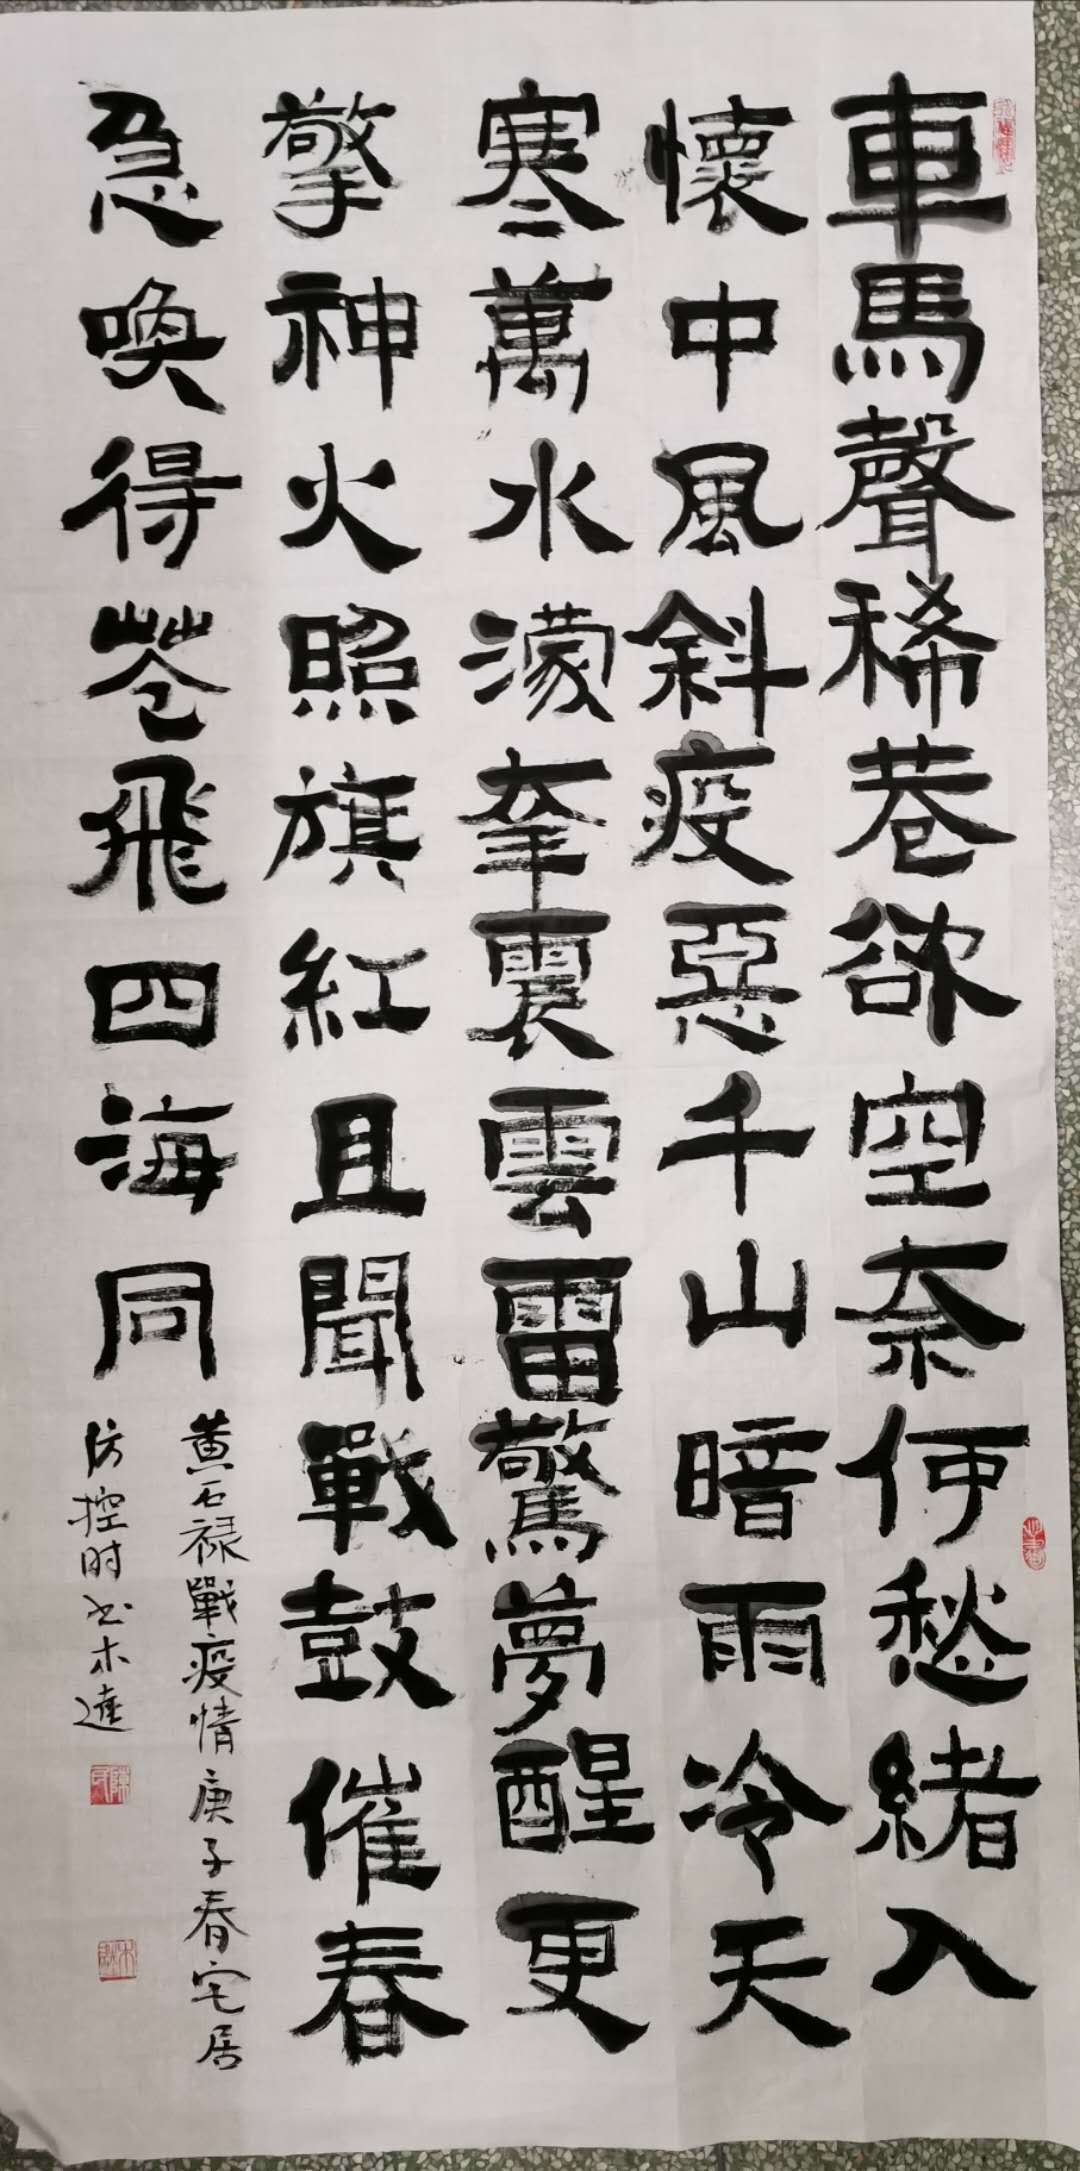 車馬聲稀巷欲空奈何愁緒入
懷中風斜疫惡千山暗雨冷天
寒萬水濛震雲雷驚夢醒更
擎神火照旗紅且聞戰鼓催春
急喚得飛四海同
黄石禄戰疫情庚子春宅居
防控时书木達